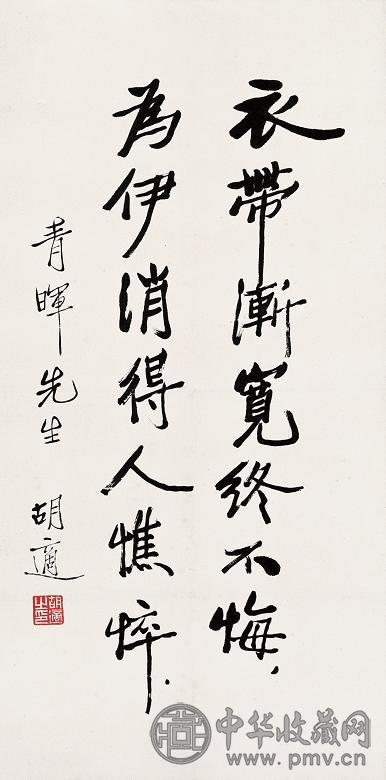 衣帶漸寬終不悔，
為伊消得人憔悴．
青暉先生 胡適
胡適之印
中华收藏网
www.pmv.cn